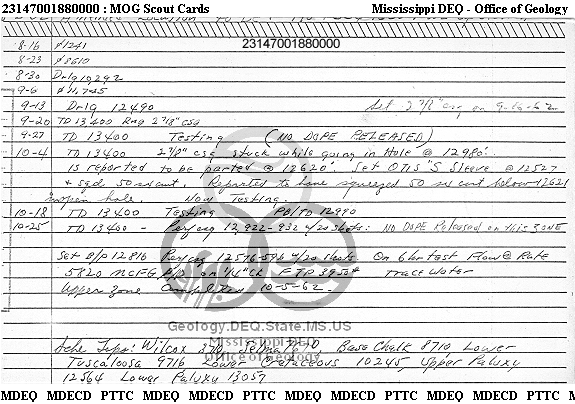 23147001880000 : MOG Scout Cards Mississippi DEQ - Office of Geology
23147001880000
8-16 #1241
8-23 # 8610
8-30 Drlg 10,292
9-6 # 11,745
9-13 Drlg 12490 Set 2 7/8" csg on 9-20-62
9-20 TD 13400 Rng 2 7/8" csg
9-27 TD 13400 Testing (NO DOPE RELEASED)
10-4 TD 13400 2 7/8" csg stuck while going in Hole @ 12980'.
Is reported to be parted @ 12620'. Set OTIS "S Sleeve @ 12527
+ sqd 50 sx cut. Reported to have squeezed 50 sx cmt below 12621
in open hole. Now Testing.
10-18 TD 13400 Testing PB/TD 12990
10-25 TD 13400 - Perf csg 12,922-932 w/20 shots: NO DOPE Released on this ZONE
Set B/P 12816 Perf csg 12576-596 w/20 shots. On 6 hr test Flow @ Rate
5820 MCFG P/D on 14/64" CK FTP 3950# Trace Water
Upper Zone Completion 10-5-62
Geology.DEQ.State.MS.US
Mississippi DEQ
Office of Geology
Ache Tops: Wilcox Selma Base Chalk 8710 Lower
Tuscaloosa 9716 Lower Cretaceous 10245, Upper Paluxy
12564 Lower Paluxy 13057
MDEQ MDECD PTTC MDEQ MDECD PTTC MDEQ MDECD PTTC MDEQ MDECD PTTC M